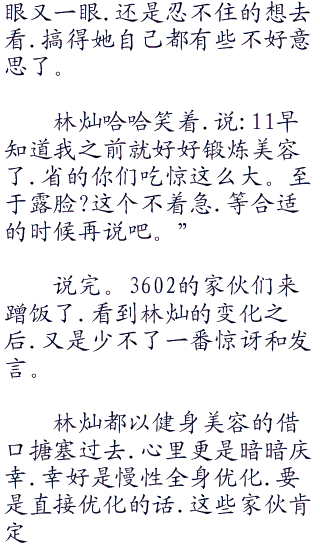 眼又一眼.还是忍不住的想去
看.搞得她自己都有些不好意
思了。
林灿哈哈笑着.说:11早
知道我之前就好好锻炼美容
了.省的你们吃惊这么大。至
于露脸?这个不着急.等合适
的时候再说吧。”
说完。3602的家伙们来
蹭饭了.看到林灿的变化之
后.又是少不了一番惊讶和发
言。
林灿都以健身美容的借
口搪塞过去.心里更是暗暗庆
幸.幸好是慢性全身优化.要
是直接优化的话.这些家伙肯
定